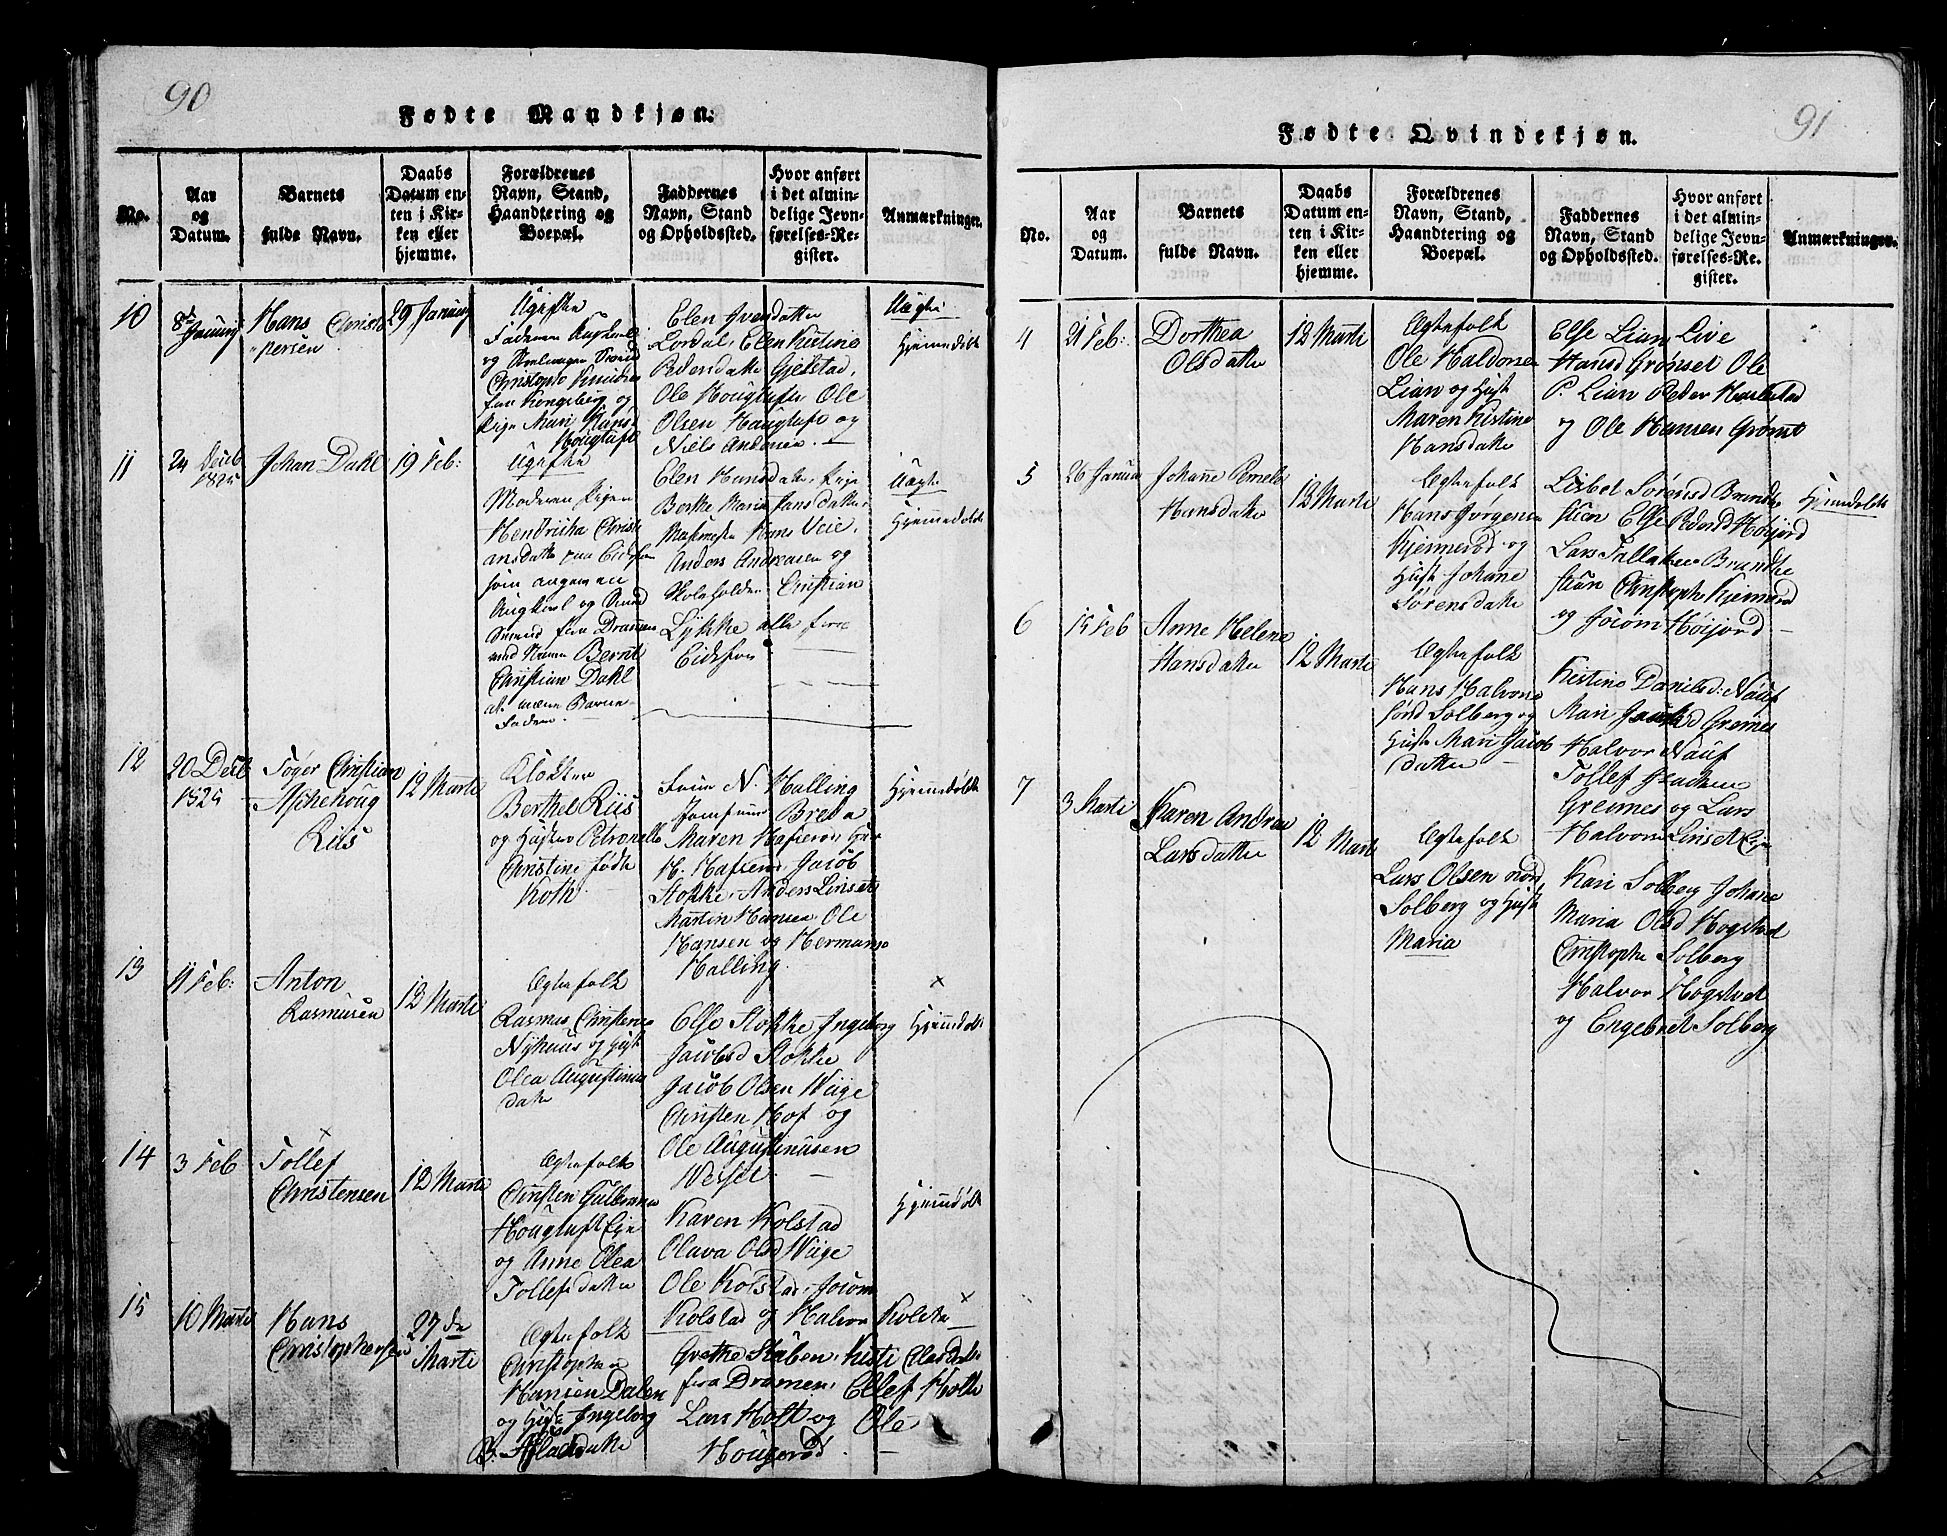 90
Fødte Mandkjøn.
No.
Aar
og
Datum.
Barnets
fulde Navn.
Daabs
Datum en-
ten i Kir-
ken eller
hjemme.
Forældrenes
Navn, Stand,
Haandtering og
Boepæl.
Faddernes
Navn, Stand
og Opholdssted.
Hvor anført
i det almin-
delige Jevn-
førelses-Re-
gister.
Anmærkninger.
10
8de
Januarij
Hans Christo
persen
29 Januarij
Ugifte
Faderen
og
Christoph Knudsen
fra Kongsberg og
Pige Mari Hansd
Hougtuft
Elen Iversdatter
Lordal, Elen Kistine
Pedersdatter Gjelstad,
Ole Hougtuft Ole
Olsen Hougtuft og
Niels Andersen.
Uægte
Hjemmedøbt
11
24 Decb
1825
Johan Dahl
19 Feb:
Ugifte
Moderen Pigen
Hendricha Christi
ansdatter paa Eidsfos
som angav en
Ungkarl og Smed
Svend fra Drammen
med Navn Bernt
Christian Dahl
at være Barne-
Fader.
Elen Hansdatter, Pige
Berthe Maria Hansdatter
Masmester Hans Veie,
Anders Andreasen og
Skoleholder Christian
Lykke alle fra
Eidsfos
Uægte
Hjemmedøbt
12
20 Decb
1825
Tøger Christian
Aschehoug
Riis
12 Marti
Klokker
Berthel Riis
og Hustru Petronelle
Christine fødte
Koth
Frue N. Halling
Jomfrue Breda
Maren Hafsteen, Hgr
H. Hafsteen, Jacob
Stokke, Anders Linset
Martin Hansen Ole
Hansen og Hermans
Halling
Hjemmedøbt
13
11 Feb:
Anton
Rasmusen
12 Marti
Ægtefolk
Rasmus Christensen
Nyhuus og Hust
Olea Augustinus
datter
Else Stokke, Ingeborg
Jacobsd Stokke
Jacob Olsen Wiige
Christen Hof og
Ole Augustinusen
Wesset
x
Hjemmedøbt
14
3 Feb
x
Tollef
Christensen
12 Marti
Ægtefolk
Christen Gulbransen
Hougtuft Eje
og Anne Olea
Tollefsdatter
Karen Kolstad
Olava Olsd Wiige
Ole Kolstad, Jocom
Kolstad og Halvor Kolstad
Hjemmedøbt
15
10 Marti
Hans
Christophersen
27 de
Marti
Ægtefolk
Christopher
Hansen Dalen
og Hust Ingeborg
B. Aslacsdatter
Grethe Støben, Kisti Elasdatter
fra Dramen, Ellef Holte
Lars Holt og Ole
Hougerød
x
91
Fødte Qvindekjøn.
No.
Aar
og
Datum.
Barnets
fulde Navn.
Daabs
Datum en-
ten i Kir-
ken eller
hjemme.
Forældrenes
Navn, Stand,
Haandtering og
Boepæl.
Faddernes
Navn, Stand
og Opholdssted.
Hvor anført
i det almin-
delige Jevn-
førelses-Re-
gister.
Anmærkninger.
4
21 Feb:
Dorthea
Olsdatter
12 Marti
Ægtefolk
Ole Haldorsen
Lian og Hust
Maren Kistine
Hansdatter
Else Lian, Live
Hansd Grønset Ole
P. Lian Peder Harlestad
og Ole Hansen Grønset
5
26 Januari
Johanne Pernelle
Hansdatter
12 Marti
Ægtefolk
Hans Jørgensen
Kjemerød og
Hust Johane
Sørensdatter
Lisbet Sørensd Brandhe
stuen Else Pedersd Høijord
Lars Tallaksen Brandhe
stuen Christoph Kjemerød
og Jocom Høijord
Hjemmedøbt
6
15 Feb
Anne Helene
Hansdatter
12 Marti
Ægtefolk
Hans Halvors
sønd Solberg og
Hust Mari Jacob
datter
Kistine Danielsd: Nauf
Mari Jacobsd Grennes
Halvor Nauf
Tollef Isachsen
Grennes og Lars
Halvorsen Linset Eje
7
3 Marti
Karen Andrea
Larsdatter
12 Marti
Ægtefolk
Lars Olsen nord
Solberg og Hust
Maria
Kari Solberg Johane
Maria Olsd Hogstvet
Christophe Solberg
Halvor Hogstvet
og Engebret Solberg